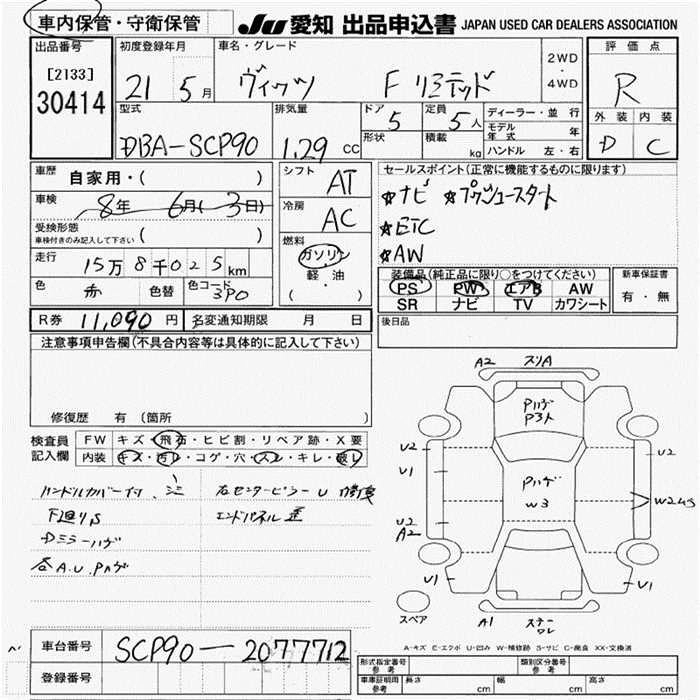 車内保管・守衛保管
JU 愛知 出品申込書 JAPAN USED CAR DEALERS ASSOCIATION
出品番号
[2133]
30414
初度登録年月
21 5月
車名・グレード
ヴィッツ F リミテッド
2WD
・
4WD
評価点
R
外装 内装
D C
型式
DBA-SCP90
排気量
1.29 cc
ドア 5
形状
定員 5人
積載 kg
ディーラー・並行
モデル年式 年
ハンドル 左・右
車歴 自家用・( )
車検 8年 6月(3日)
受検形態
車検付きのみ記入して下さい ( )
走行 15万8千025km
色 赤 色替 色コード 3P0
シフト AT
冷房 AC
燃料
ガソリン
軽・油
( )
セールスポイント(正常に機能するものに限ります)
☆ナビ ☆プッシュスタート
☆ETC
☆AW
装備品(純正品に限り○をつけてください)
PS PW エアB AW
SR ナビ TV カワシート
新車保証書
有・無
R券 11,090円 名変通知期限 月 日
後日品
注意事項申告欄(不具合内容等は具体的に記入して下さい)
修復歴 有 (箇所 )
検査員記入欄
FW キズ・飛石・ヒビ割・リペア跡・X要
内装 キズ・汚レ・コゲ・穴・スレ・キレ・破レ
ハンドルカバー付、シミ
下廻りS
Dミラーハゲ
各A.U.Pハゲ
右センターピラーU 修復
エンドパネル歪
A2 スリA
Pハゲ
P3ト
U2
U1
U2
A2
U1
Pハゲ
W3
U2
W2US
U1
A1
スペア
A-キズ E-エクボ U-凹み W-補修跡 S-サビ C-腐食 XX-交換済
車台番号 SCP90-2077712
登録番号
形式指定番号
参考
類別区分番号
参考
車庫証明用
参考
長さ cm 幅 cm 高さ cm